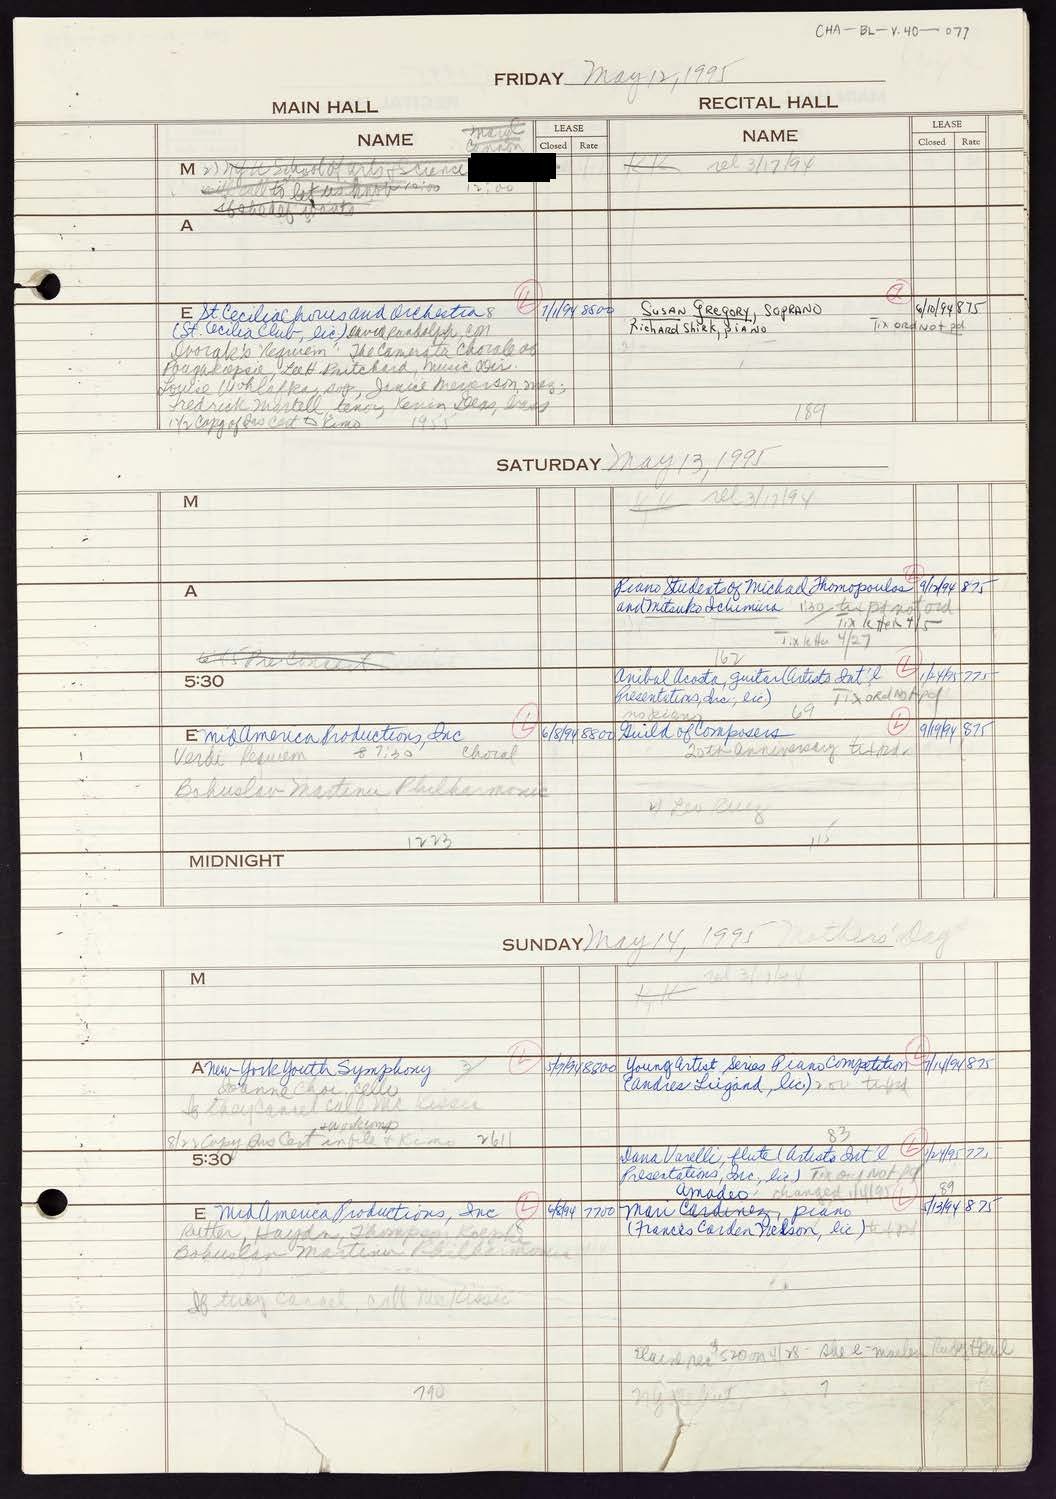 CHA-BL-V.40-077
FRIDAY May 12, 1995
MAIN HALL
RECITAL HALL
NAME
LEASE
Closed Rate
NAME
LEASE
Closed Rate
M 2) NYU School of Arts & Science
to let us know 12:00
K.K. rel 3/17/94
A
E St Cecilia Chorus and Orchestra 8 L 7/1/94 8500
(St. Cecilia Club, lic) David Randolph, con
Dvorak's Requiem The Camerata Chorale of
Poughkeepsie, Lee H Pritchard, Music Dir.
Louise Wohlafka, sop, Janice Meyerson, mez;
Fredrick Martell, tenor, Kevin Deas, bass
1/2 Copy of Ins Cert to Kimo 1955
SUSAN GREGORY, SOPRANO 6/10/94 875
Richard Shirk, PIANO Tix ord Not pd
189
SATURDAY May 13, 1995
M
K K rel 3/17/94
A
Piano Students of Michael Thomopoulos L 9/12/94 875
and Mitsuko Ichimura 1:30 tix pd not ord
Tix lettr 4/5
Tix letter 4/27
162
6:45 Pre Concert
5:30
Anibal Acosta, guitar (Artists Int'l L 1/24/95 775
Presentations, Inc, lic) Tix ord Not pd
no piano 69
E MidAmerica Productions, Inc L 6/8/94 8800
Verdi Requiem 7:30 Choral
Bohuslav Martinu Philharmonic
1223
Guild of Composers L 9/19/94 875
20th anniversary tix pd
115
MIDNIGHT
SUNDAY May 14, 1995 Mothers' Day
M
K.K. rel 3/17/94
A New York Youth Symphony L 5/9/94 8800
Joanne Choi, Cello
If they cancel call Mr Kissin
8/22 Copy Ins Cert in file & Kimo 2611
Young Artist Series Piano Competition L 7/14/94 875
tix pd
83
5:30
Dana Varelli, flute (Artists Int'l L 1/24/95 775
Presentations, Inc, lic) Tix ord Not pd
Amadeo changed 1/4/95 89
E MidAmerica Productions, Inc L 6/8/94 7700
Rutter, Haydn, Thompson
Bohuslav Martinu Philharmonic
If they cancel, call
790
Mari Cardinez, piano L 5/13/94 875
(Frances Carden lic) tix pd
$520 on 4/28 - she e-mailed
NY debut